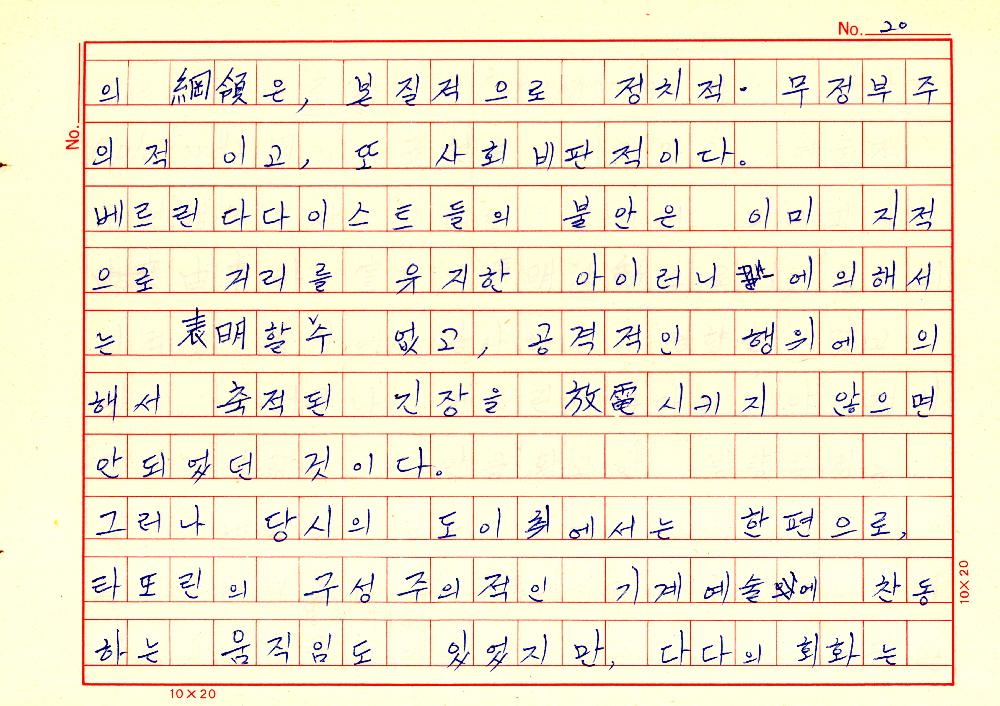 No. 20
No.
의 綱領은, 본질적으로 정치적·무정부주
의적 이고, 또 사회 비판적이다.
베르린다다이스트 들의 불안은 이미 지적
으로 거리를 유지한 아이러니 에의해서
는 表明할수 없고, 공격적인 행위에 의
해서 축적된 긴장을 放電시키지 않으면
안되었던 것이다.
그러나 당시의 도이취에서는 한편으로,
타또린의 구성주의적인 기계예술에 찬동
하는 움직임도 있었지만, 다다의 회화는
10×20
10×20